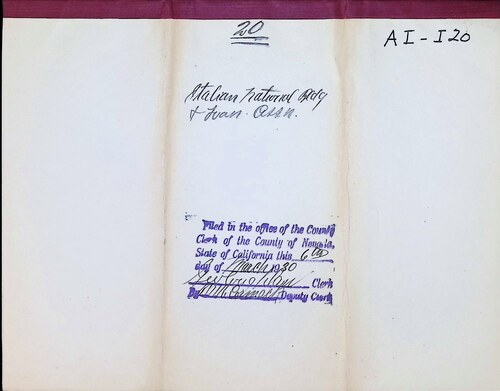 20
AI-I20
Italian National Bldg
& Loan Assn.
Filed in the office of the County
Clerk of the County of Nevada,
State of California this 6th
day of March 1930
Clerk
By Deputy Clerk